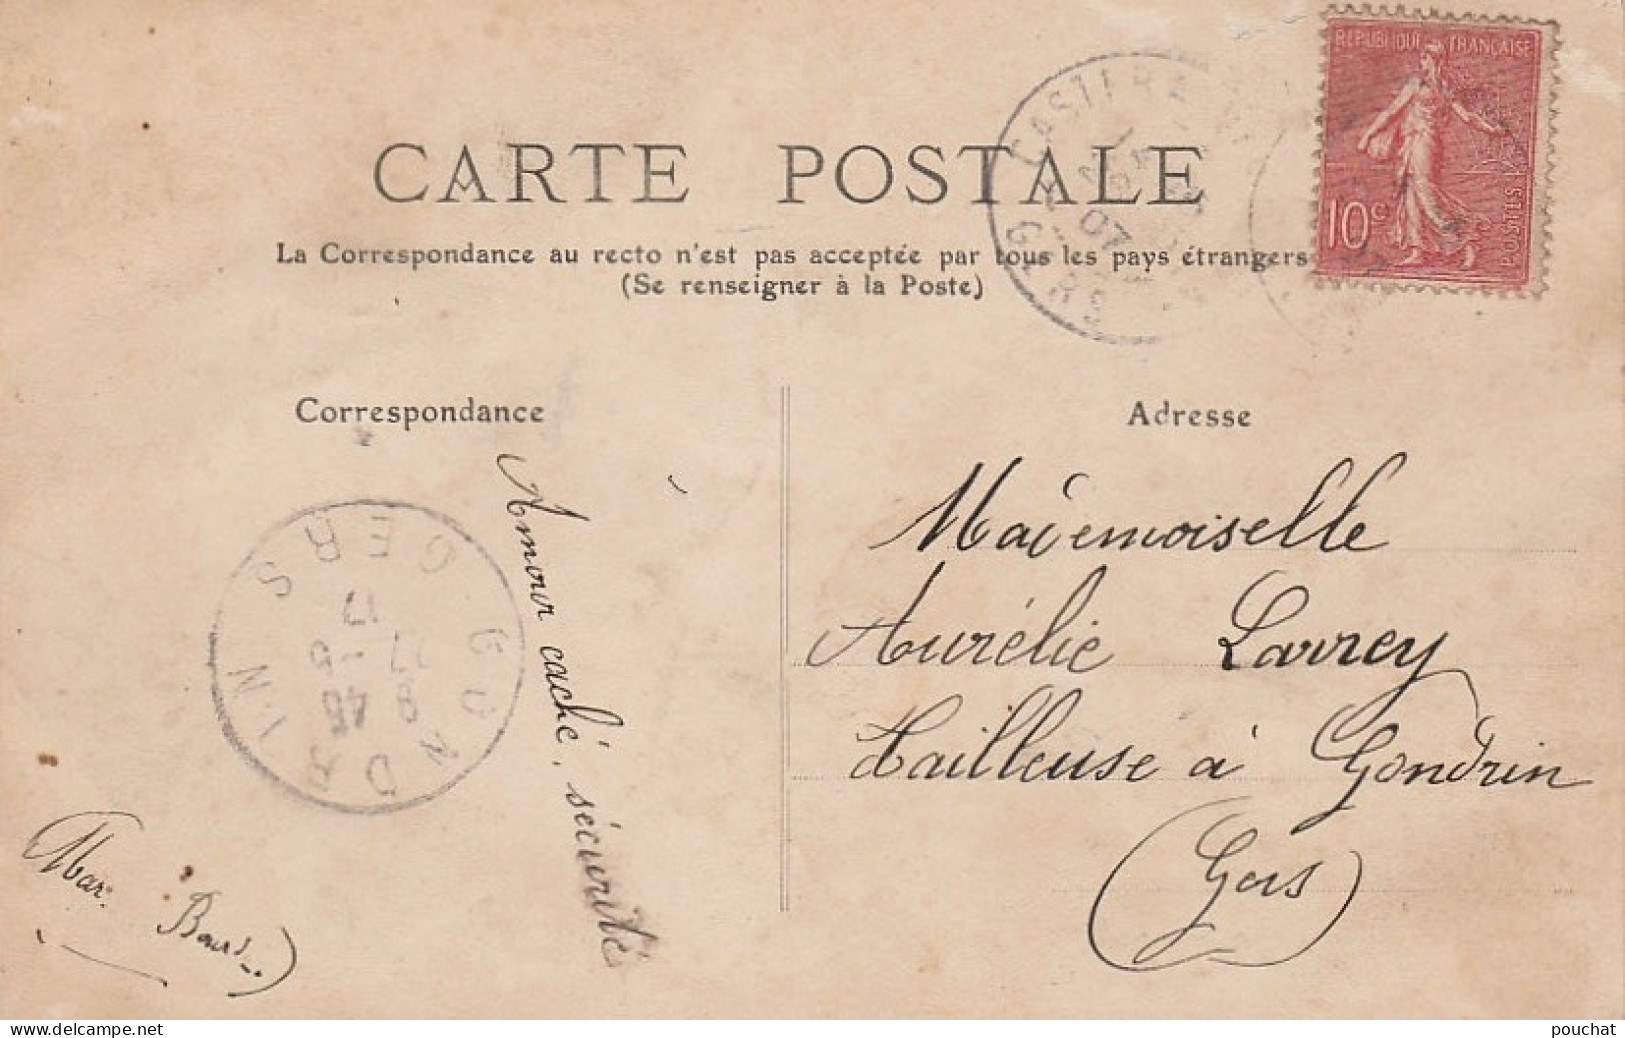 REPUBLIQUE FRANÇAISE
10c
POSTES
CARTE POSTALE
La Correspondance au recto n'est pas acceptée par tous les pays étrangers
(Se renseigner à la Poste)
GERS
07
Correspondance
Adresse
Amour caché, sécurité
Mademoiselle
Aurélie Larrey
Tailleuse à Gondrin
(Gers)
GONDRIN
GERS
17
45
Mar.
www.delcampe.net
pouchat